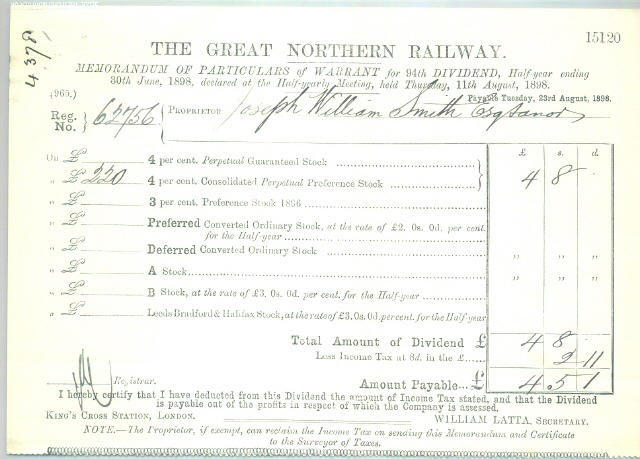 15120
4378
THE GREAT NORTHERN RAILWAY.
MEMORANDUM OF PARTICULARS of WARRANT for 94th DIVIDEND, Half-year ending
30th June, 1898, declared at the Half-yearly Meeting, held Thursday, 11th August, 1898.
(960.) Payable Tuesday, 23rd August, 1898.
Reg. No. } 62756 { PROPRIETOR Joseph William Smith Esq &anor
£ s. d.
On £ 4 per cent. Perpetual Guaranteed Stock
„ £ 220 4 per cent. Consolidated Perpetual Preference Stock } 4 8 .
„ £ 3 per cent. Preference Stock 1896
„ £ Preferred Converted Ordinary Stock, at the rate of £2. 0s. 0d. per cent.
for the Half-year
„ £ Deferred Converted Ordinary Stock „ „ „
„ £ A Stock „ „ „
„ £ B Stock, at the rate of £3. 0s. 0d. per cent. for the Half-year
„ £ Leeds Bradford & Halifax Stock, at the rate of £3. 0s. 0d. per cent. for the Half-year
Total Amount of Dividend £ 4 8
Less Income Tax at 8d. in the £ 2 11
Registrar. Amount Payable... £ 4 5 1
I hereby certify that I have deducted from this Dividend the amount of Income Tax stated, and that the Dividend
is payable out of the profits in respect of which the Company is assessed.
KING'S CROSS STATION, LONDON. WILLIAM LATTA, SECRETARY.
NOTE.—The Proprietor, if exempt, can reclaim the Income Tax on sending this Memorandum and Certificate
to the Surveyor of Taxes.